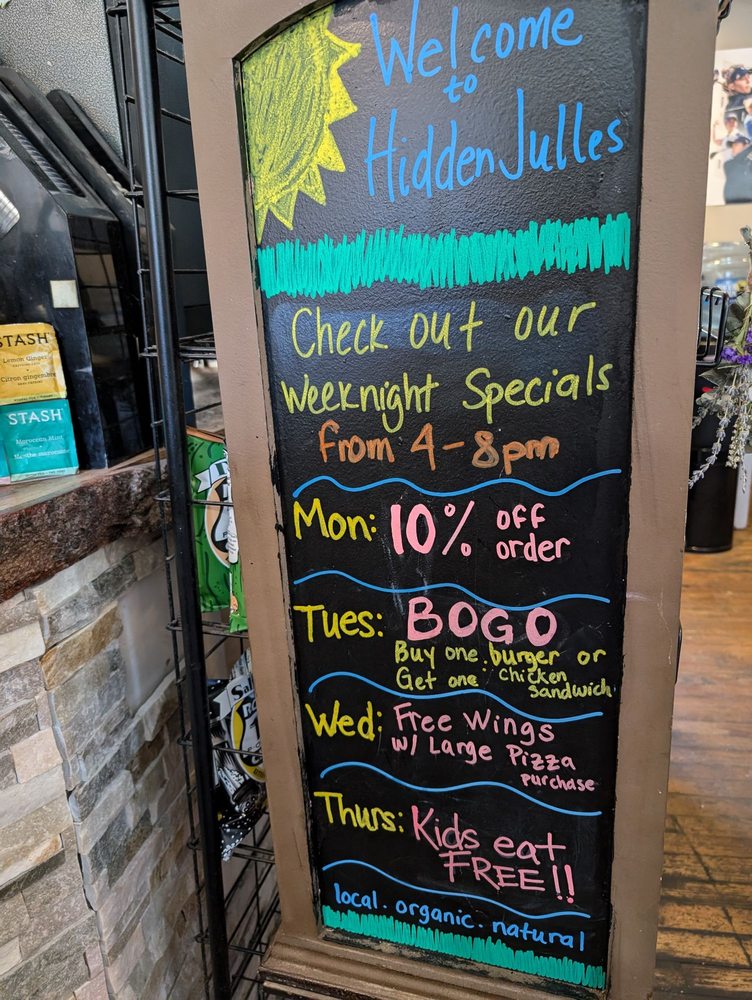 Welcome
to
Hidden Julles
Check out our
Weeknight Specials
from 4-8pm
Mon: 10% off
order
Tues: BOGO
Buy one burger or
Get one chicken
sandwich
Wed: Free Wings
w/ Large Pizza
purchase
Thurs: Kids eat
FREE!!
local. organic. natural
STASH
Lemon Ginger
Citron gingembre
STASH
Moroccan Mint
Menthe marocaine